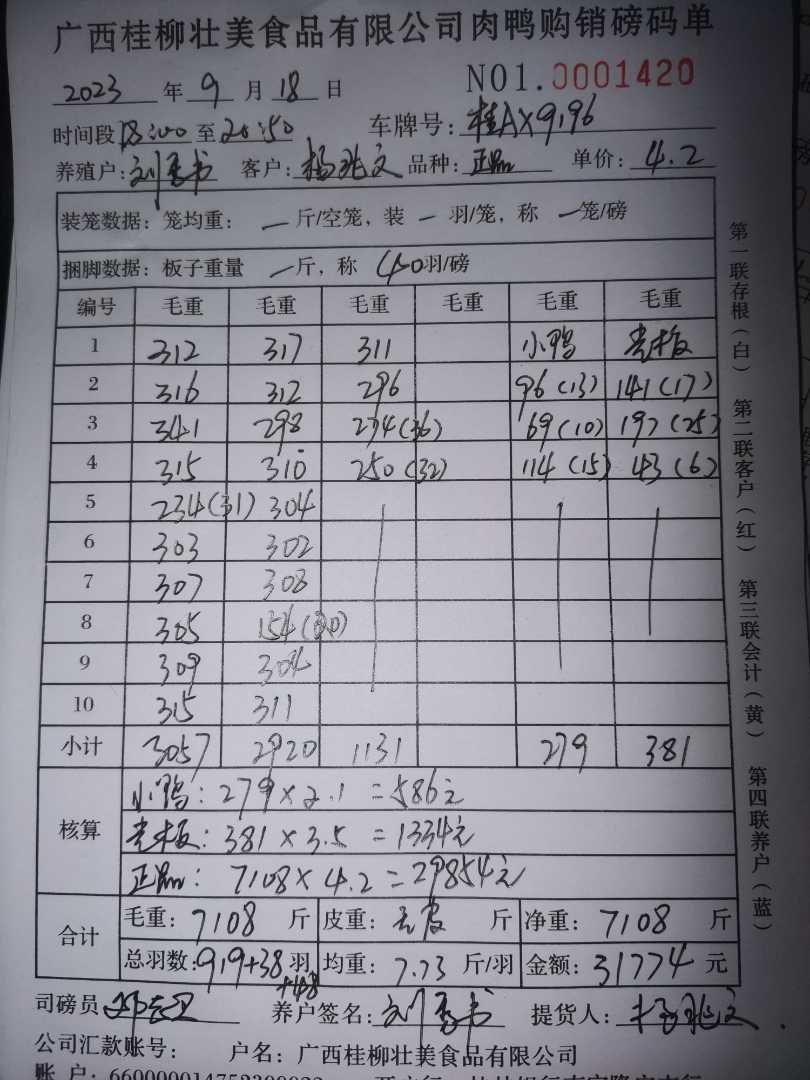 广西桂柳壮美食品有限公司肉鸭购销磅码单
2023 年 9 月 18 日 NO1.0001420
时间段 18:00 至 20:50 车牌号: 桂AX9196
养殖户: 刘 书 客户: 杨兆文 品种: 正品 单价: 4.2
装笼数据: 笼均重: 一 斤/空笼, 装 一 羽/笼, 称 一 笼/磅
捆脚数据: 板子重量 一 斤, 称 40 羽/磅
编号 毛重 毛重 毛重 毛重 毛重 毛重
1 312 317 311 小鸭 老板
2 316 312 296 96(13) 141(17)
3 341 298 274(36) 69(10) 197(25)
4 315 310 250(32) 114(15) 43(6)
5 234(31) 304
6 303 302
7 307 308
8 305 154(20)
9 309 304
10 315 311
小计 3057 2920 1131 279 381
核算
小鸭: 279×2.1=586元
老板: 381×3.5=1334元
正品: 7108×4.2=29854元
合计
毛重: 7108 斤 皮重: 斤 净重: 7108 斤
总羽数: 919+38 羽 均重: 7.73 斤/羽 金额: 31774 元
+48
司磅员 养户签名: 刘 书 提货人: 杨兆文
公司汇款账号: 户名: 广西桂柳壮美食品有限公司
账 户:
第一联存根(白) 第二联客户(红) 第三联会计(黄) 第四联养户(蓝)